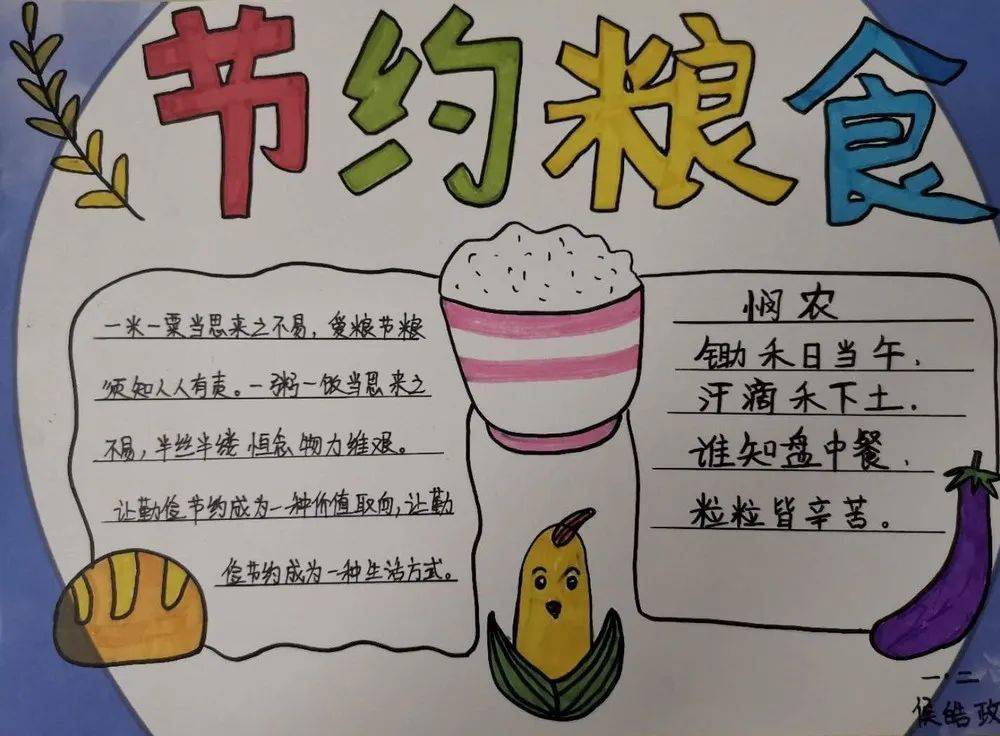 节约粮食
一米一粟当思来之不易，爱粮节粮
须知人人有责。一粥一饭当思来之
不易，半丝半缕恒念物力维艰。
让勤俭节约成为一种价值取向，让勤
俭节约成为一种生活方式。
悯农
锄禾日当午，
汗滴禾下土，
谁知盘中餐，
粒粒皆辛苦。
一·二
侯皓政